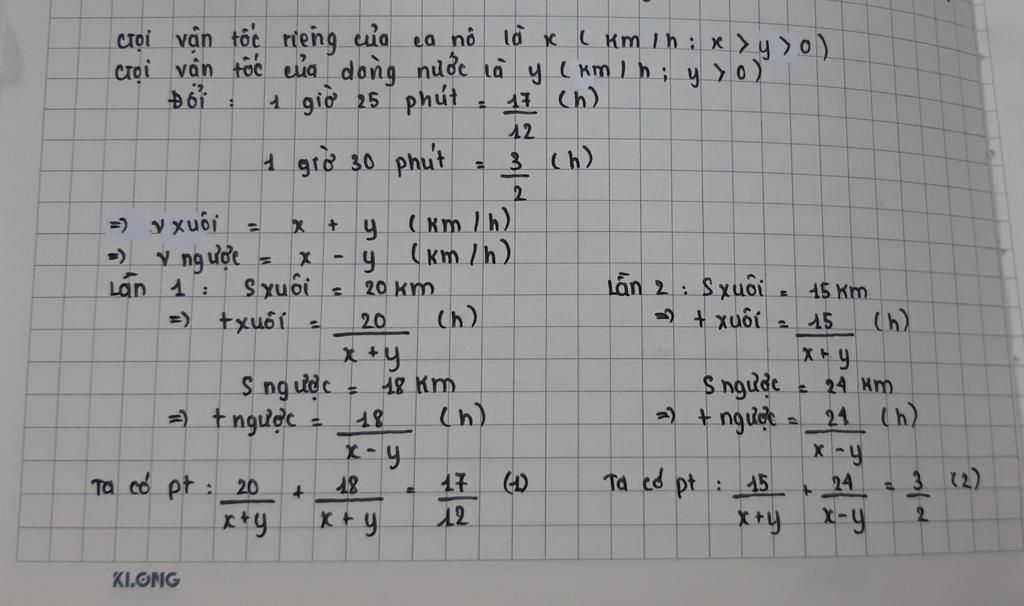 Gọi vận tốc riêng của ca nô là x (km/h; x > y > 0)
Gọi vận tốc của dòng nước là y (km/h; y > 0)
Đổi : 1 giờ 25 phút = 17/12 (h)
1 giờ 30 phút = 3/2 (h)
=> v xuôi = x + y (km/h)
=> v ngược = x - y (km/h)
Lần 1 : S xuôi = 20 km
=> t xuôi = 20/(x+y) (h)
S ngược = 18 km
=> t ngược = 18/(x-y) (h)
Ta có pt : 20/(x+y) + 18/(x+y) = 17/12 (1)
Lần 2 : S xuôi = 15 km
=> t xuôi = 15/(x+y) (h)
S ngược = 24 km
=> t ngược = 24/(x-y) (h)
Ta có pt : 15/(x+y) + 24/(x-y) = 3/2 (2)
KLONG